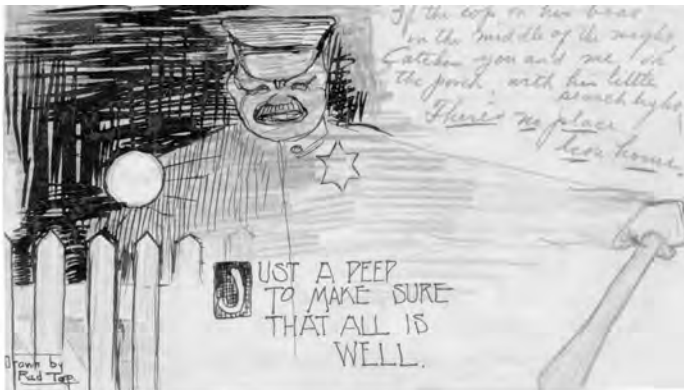 If the cop on his beat
in the middle of the night
Catches you and me, on
the porch, with his little
search light,
There's no place
like home.
JUST A PEEP
TO MAKE SURE
THAT ALL IS
WELL.
Drawn by
Red Top